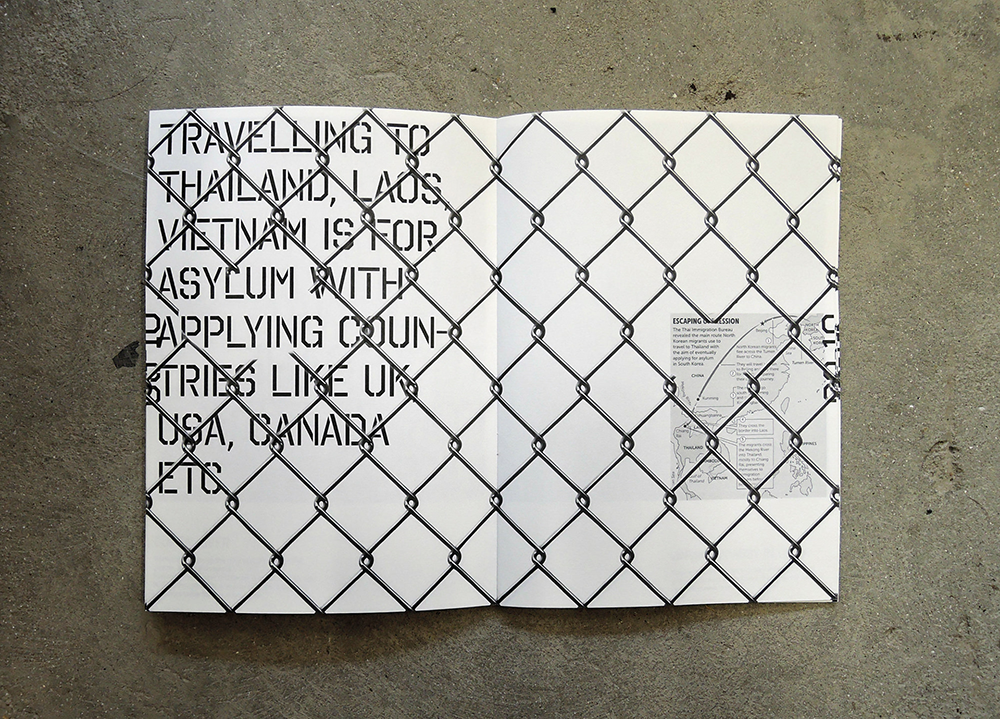 TRAVELLING TO
THAILAND, LAOS,
VIETNAM IS FOR
ASYLUM WITH
APPLYING COUN-
TRIES LIKE UK,
USA, CANADA
ETC
ESCAPING OPPRESSION
The Thai Immigration Bureau
revealed the main route North
Korean migrants use to
travel to Thailand with
the aim of eventually
applying for asylum
in South Korea.
Beijing
CHINA
Kunming
THAILAND
VIETNAM
Gulf of
Thailand
North Korean migrants
flee across the Tumen
River to China.
Tumen River
They cross the
border into Laos.
The migrants cross
the Mekong River
into Thailand,
mostly in Chiang
Rai, presenting
themselves to